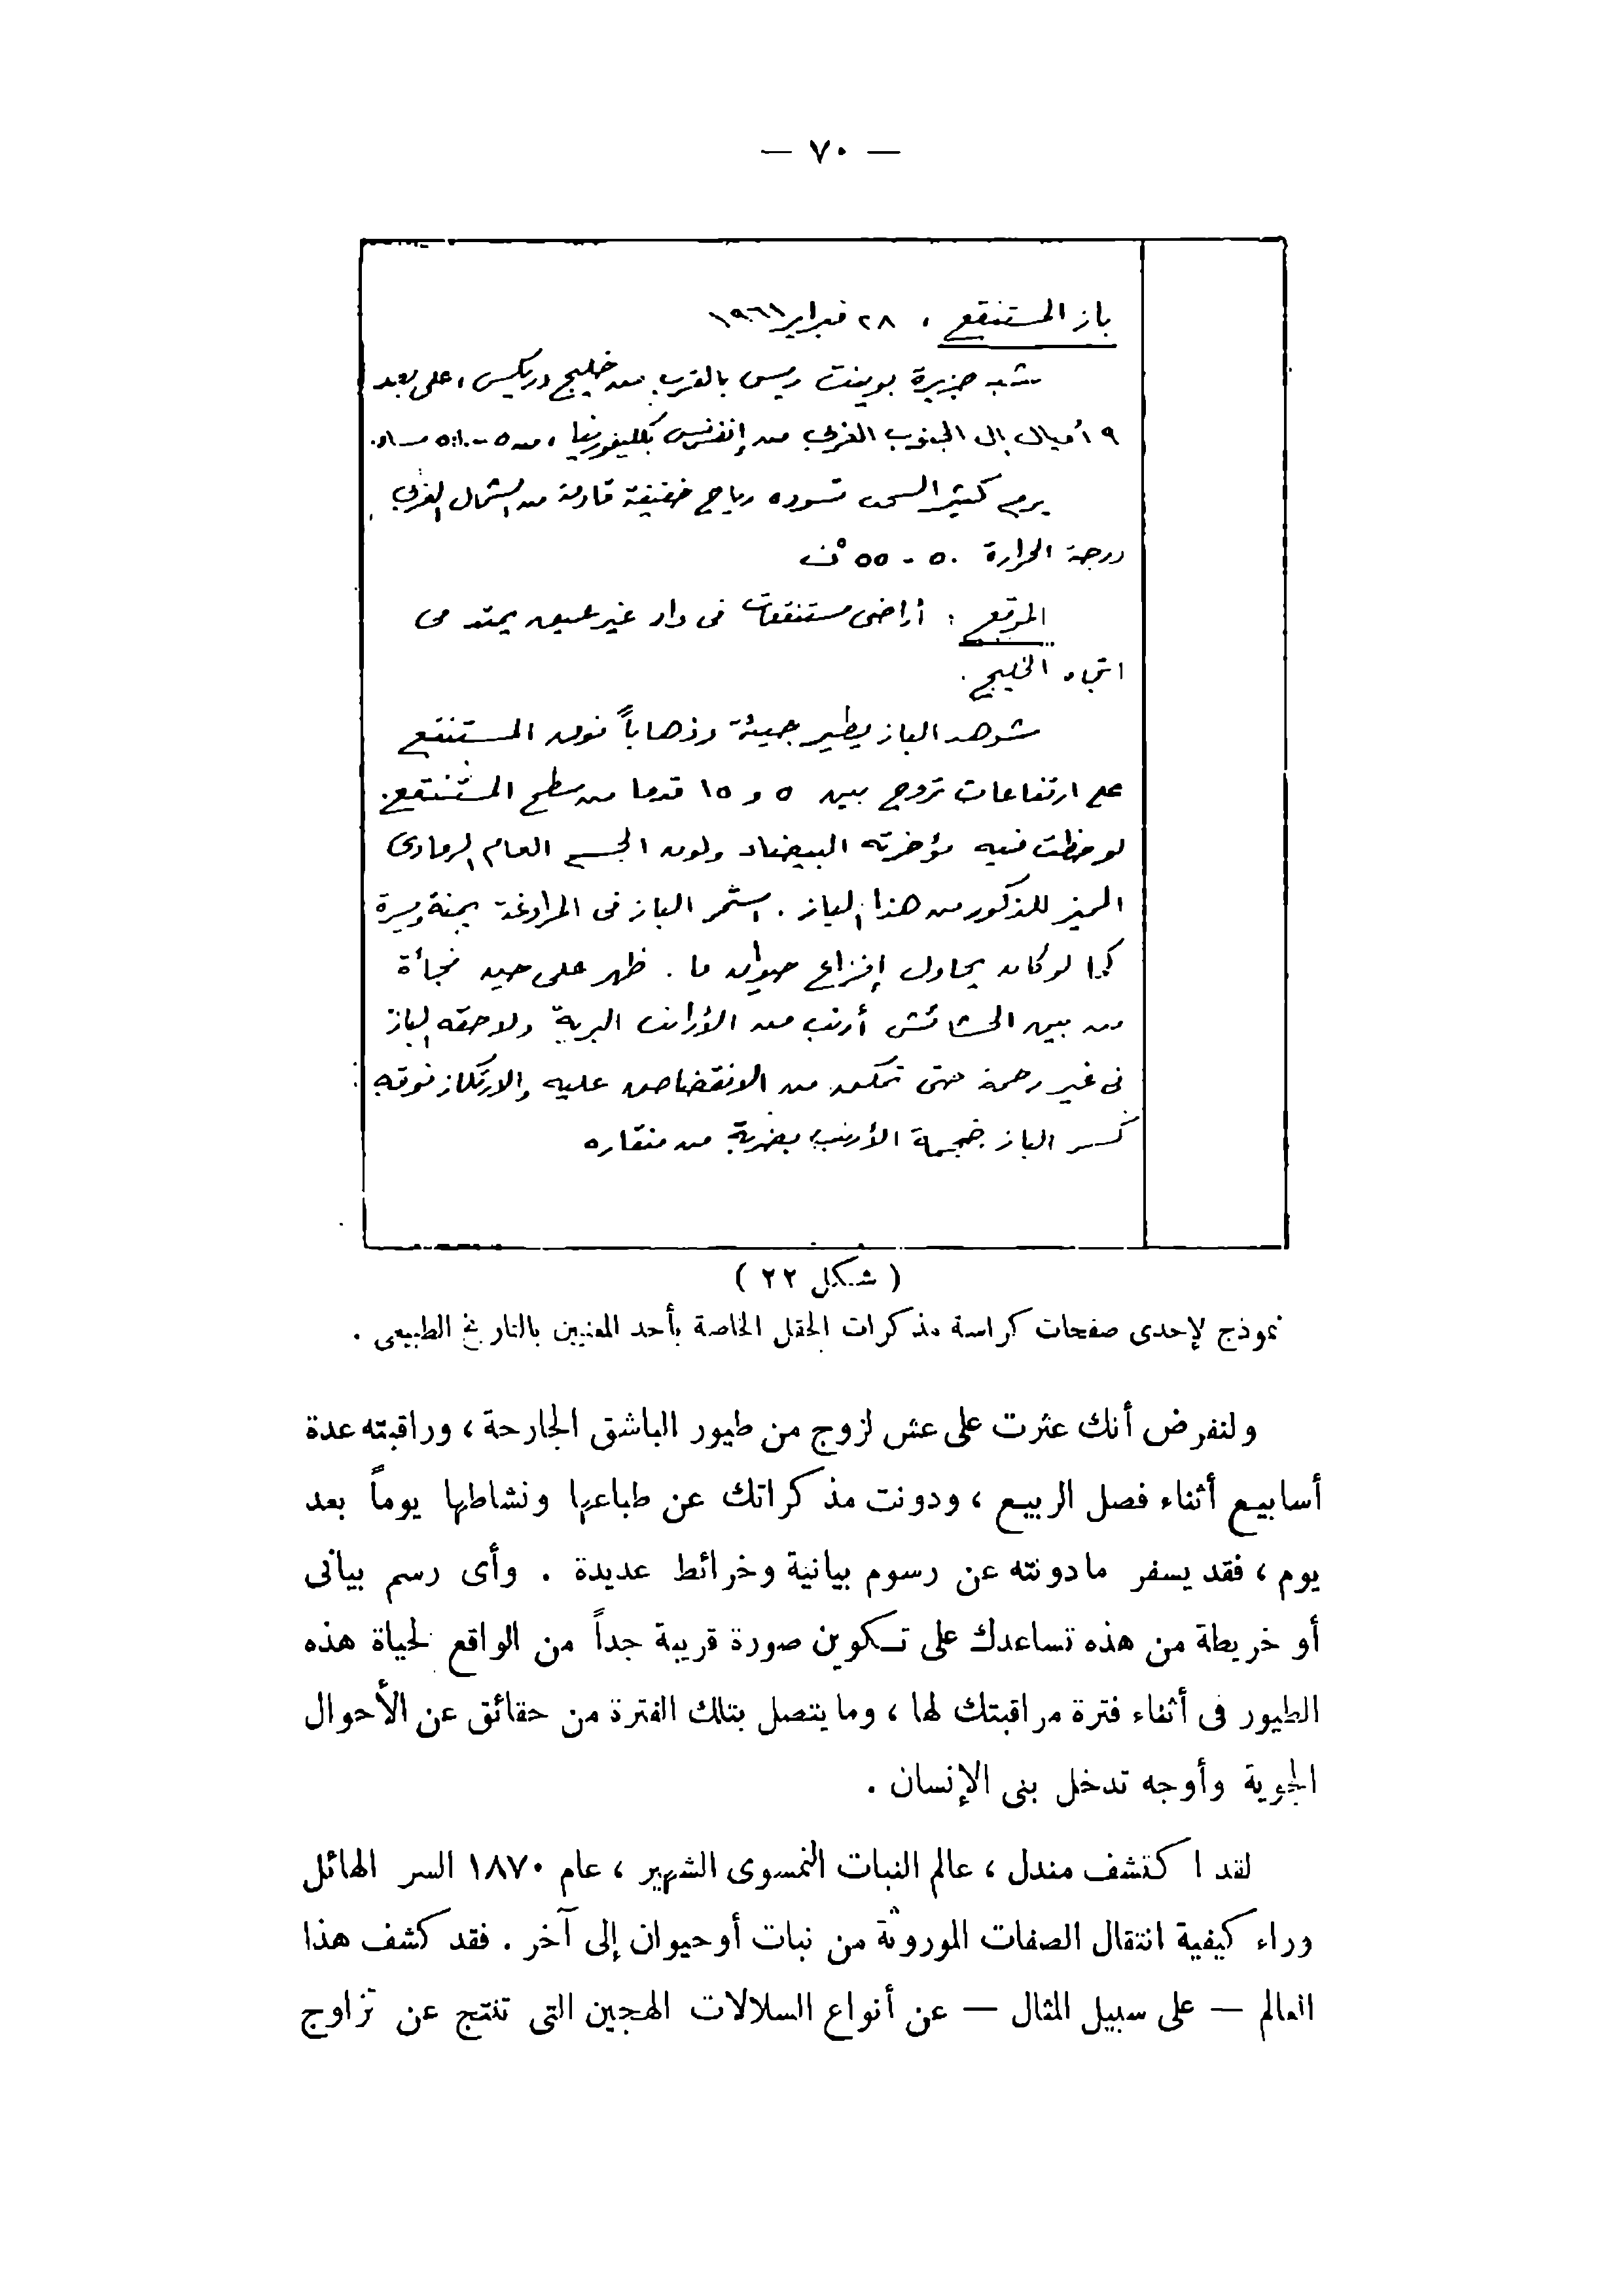 — ٧٠ —
باز المستنقع ، ٢٨ فبراير ١٩٦١
شبه جزيرة بوينت ريس بالقرب من خليج دريكس ، على بعد
٩ أميال إلى الجنوب الغربي من إنفرنس بكليفورنيا ، من
يوم كثير السحب تسوده رياح خفيفة قادمة من الشمال الغربي
درجة الحرارة ٥٠ - ٥٥ °ف
الموقع : أراضى مستنقعات فى واد غير عميق يمتد فى
اتجاه الخليج .
شوهد الباز يطير جيئة وذهاباً فوق المستنقع
على ارتفاعات تروح بين ٥ و ١٥ قدما من سطح المستنقع .
لوحظت فيه مؤخرته البيضاء ولون الجسم العام الرمادى
المميز للذكور من هذا الباز . استمر الباز فى المراوغة يمنة ويسرة
كما لو كان يحاول إفزاع حيوان ما . ظهر على حين فجأة
من بين الحشائش أرنب من الأرانب البرية ولاحقه الباز
فى غير رحمة حتى تمكن من الانقضاض عليه والارتكاز فوقه .
كسر الباز جمجمة الأرنب بضربة من منقاره
( شكل ٢٢ )
نموذج لإحدى صفحات كراسة مذكرات الحقل الخاصة بأحد المعنيين بالتاريخ الطبيعى .
ولنفرض أنك عثرت على عش لزوج من طيور الباشق الجارحة ، وراقبته عدة
أسابيع أثناء فصل الربيع ، ودونت مذكراتك عن طباعها ونشاطها يوماً بعد
يوم ، فقد يسفر ما دونته عن رسوم بيانية وخرائط عديدة . وأى رسم بيانى
أو خريطة من هذه تساعدك على تكوين صورة قريبة جداً من الواقع لحياة هذه
الطيور فى أثناء فترة مراقبتك لها ، وما يتصل بتلك الفترة من حقائق عن الأحوال
الجوية وأوجه تدخل بنى الإنسان .
لقد اكتشف مندل ، عالم النبات النمسوى الشهير ، عام ١٨٧٠ السر الهائل
وراء كيفية انتقال الصفات الموروثة من نبات أو حيوان إلى آخر . فقد كشف هذا
العالم — على سبيل المثال — عن أنواع السلالات الهجين التى تنتج عن تزاوج